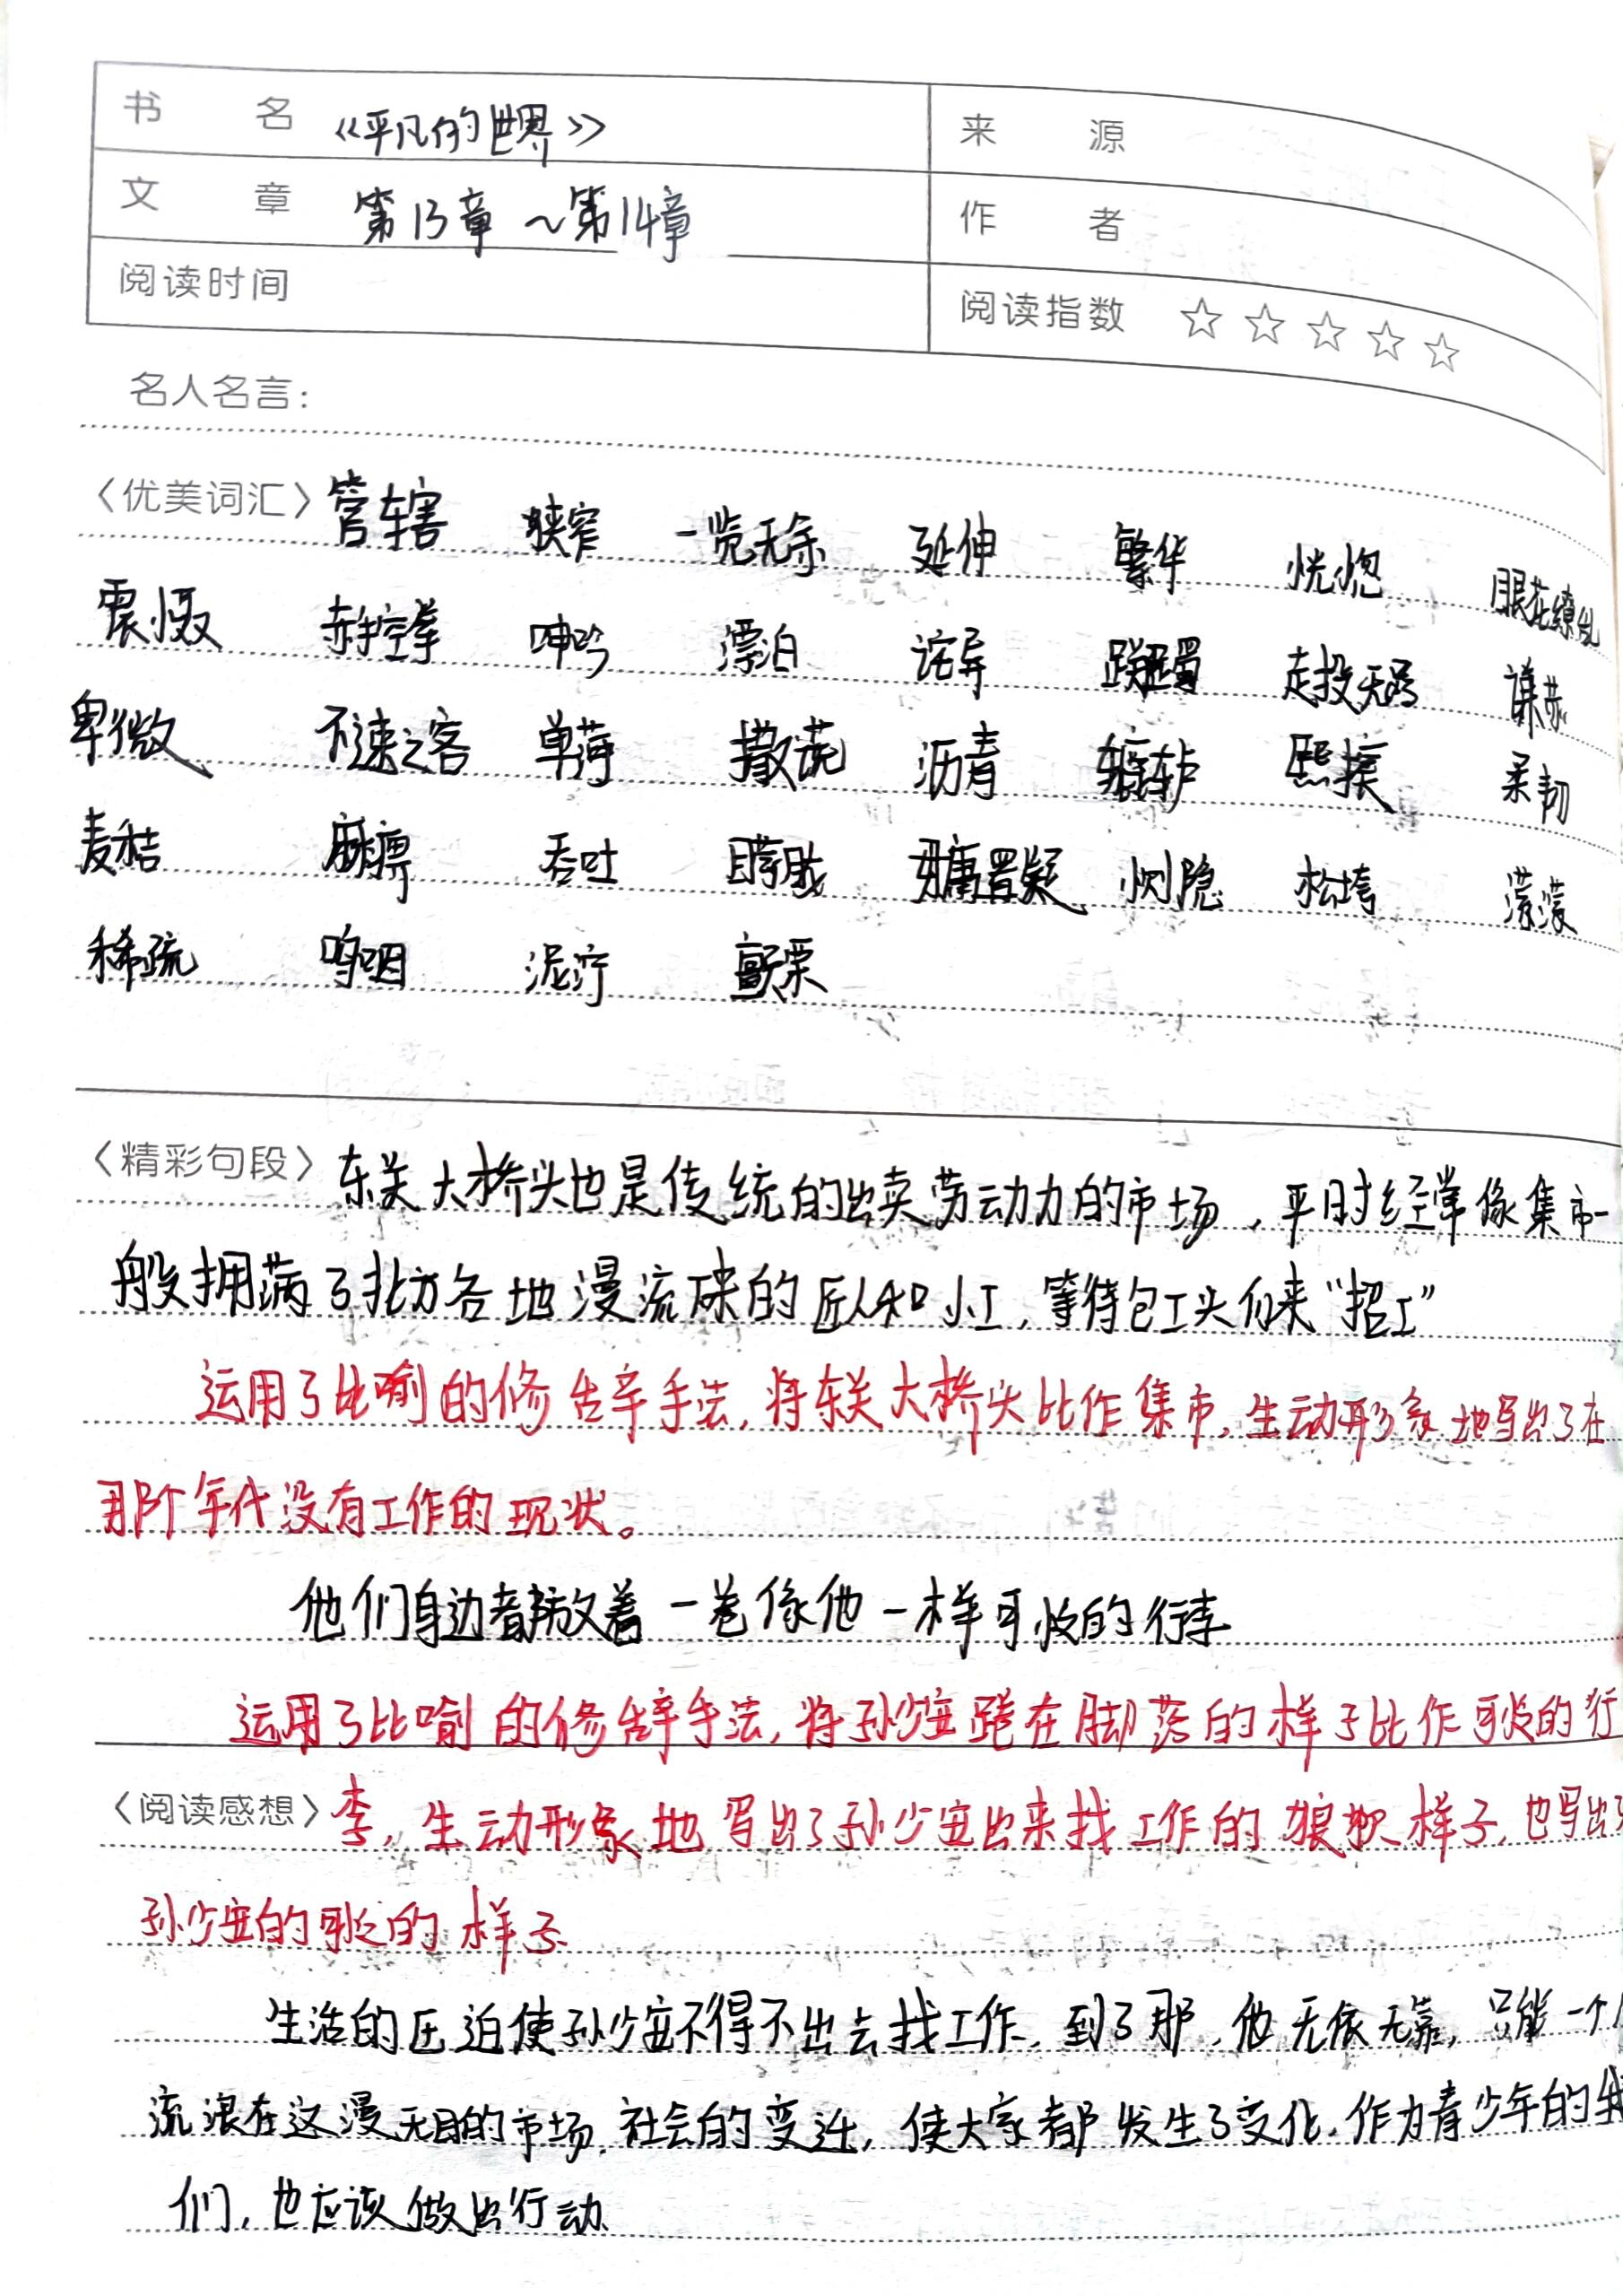 书 名 《平凡的世界》 来 源
文 章 第13章 ~第14章 作 者
阅读时间 阅读指数 ☆ ☆ ☆ ☆ ☆
名人名言:
〈优美词汇〉管辖 狭窄 一览无余 延伸 繁华 恍惚 眼花缭乱
震慑 赤手空拳 呻吟 漂泊 诧异 踯躅 走投无路 谦恭
卑微 不速之客 单薄 撒谎 沥青 辘轳 熙攘 柔韧
麦秸 麻痹 吞吐 毋庸置疑 恻隐 松垮 濛濛
稀疏 呜咽 泥泞 颤栗
〈精彩句段〉东关大桥头也是传统的出卖劳动力的市场，平时经常像集市一
般拥满了北方各地漫流来的匠人和小工，等待包工头们来“招工”
运用了比喻的修辞手法，将东关大桥头比作集市，生动形象地写出了在
那个年代没有工作的现状。
他们身边都放着一卷像他一样可怜的行李
运用了比喻的修辞手法，将孙少安蹲在脚落的样子比作可怜的行
〈阅读感想〉李，生动形象地写出了孙少安出来找工作的狼狈样子，也写出
孙少安的可怜的样子
生活的压迫使孙少安不得不出去找工作，到了那，他无依无靠，只能一个
流浪在这漫无目的市场，社会的变迁，使大家都发生了变化，作为青少年的我
们，也应该做出行动